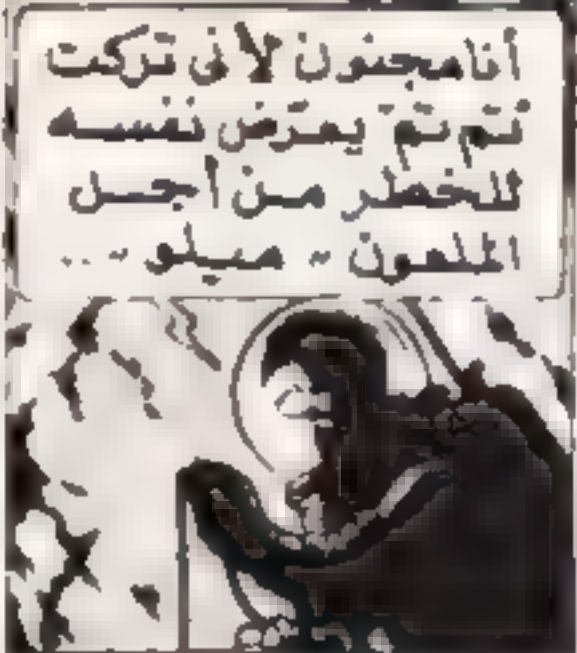 أنا مجنون لأنى تركت
تم تم يعرض نفسه
للخطر من أجل
الملعون " ميلو " ..